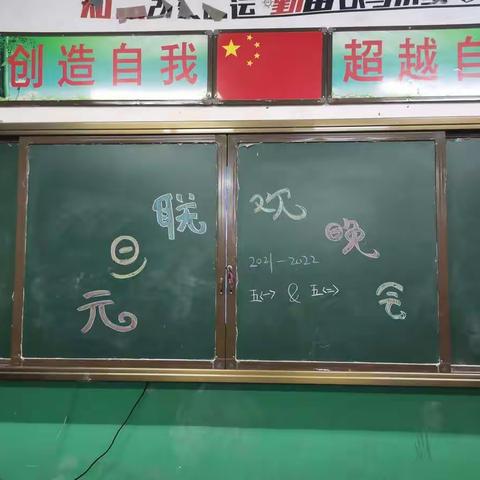 创造自我 超越自
元旦联欢晚会
2021-2022
五(一) & 五(二)